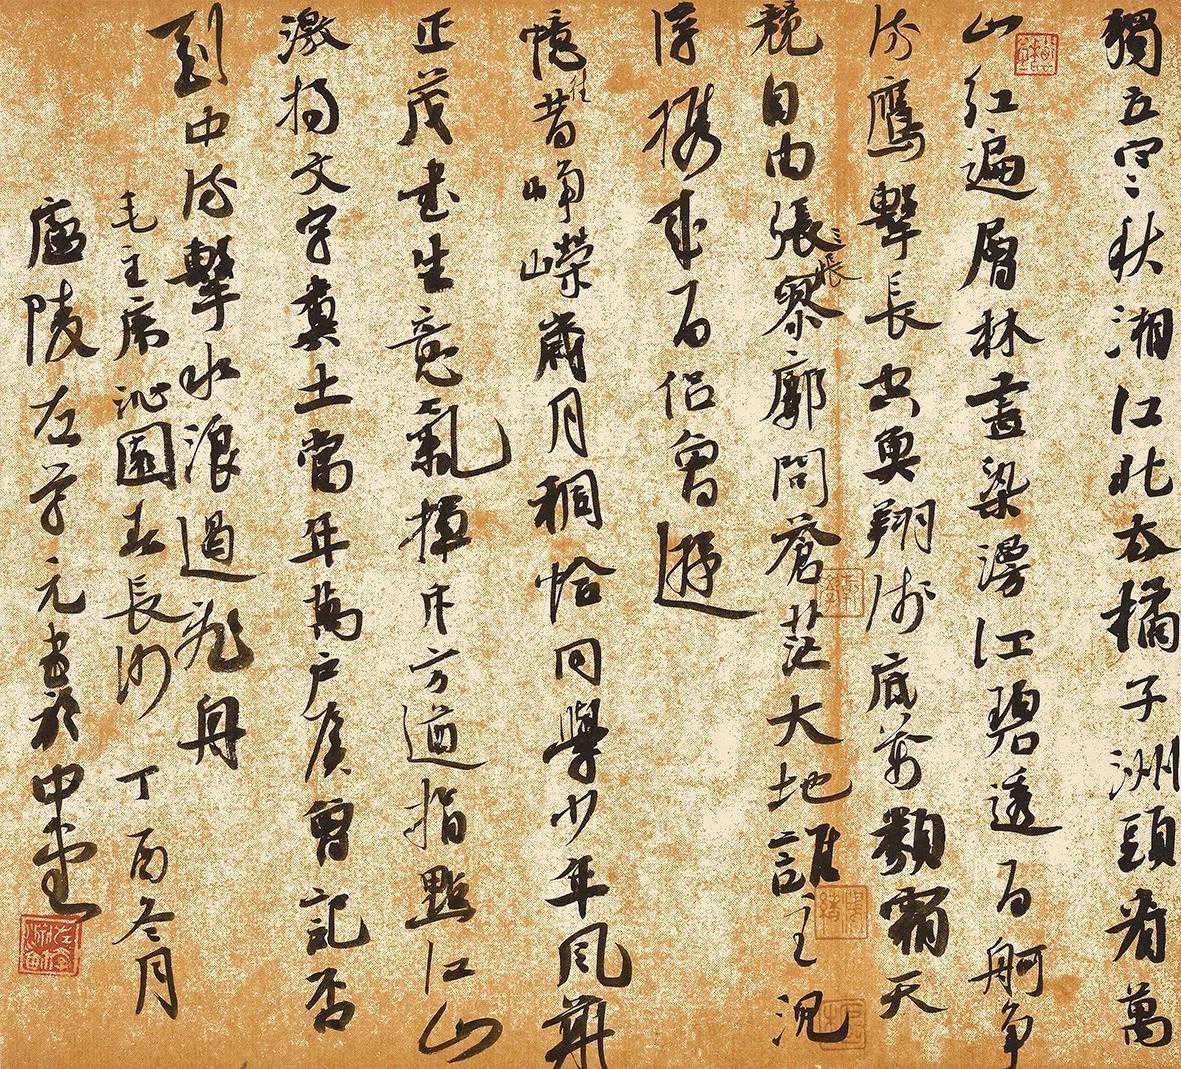 獨立寒秋湘江北去橘子洲頭看萬
山紅遍層林盡染漫江碧透百舸爭
流鷹擊長空魚翔淺底萬類霜天
競自由張悵寥廓問蒼茫大地誰主沉
浮攜來百侶曾遊
憶往昔崢嶸歲月稠恰同學少年風華
正茂書生意氣揮斥方遒指點江山
激揚文字糞土當年萬戶侯曾記否
到中流擊水浪遏飛舟
毛主席沁園春長沙丁酉冬月
廬陵左元書於中堂